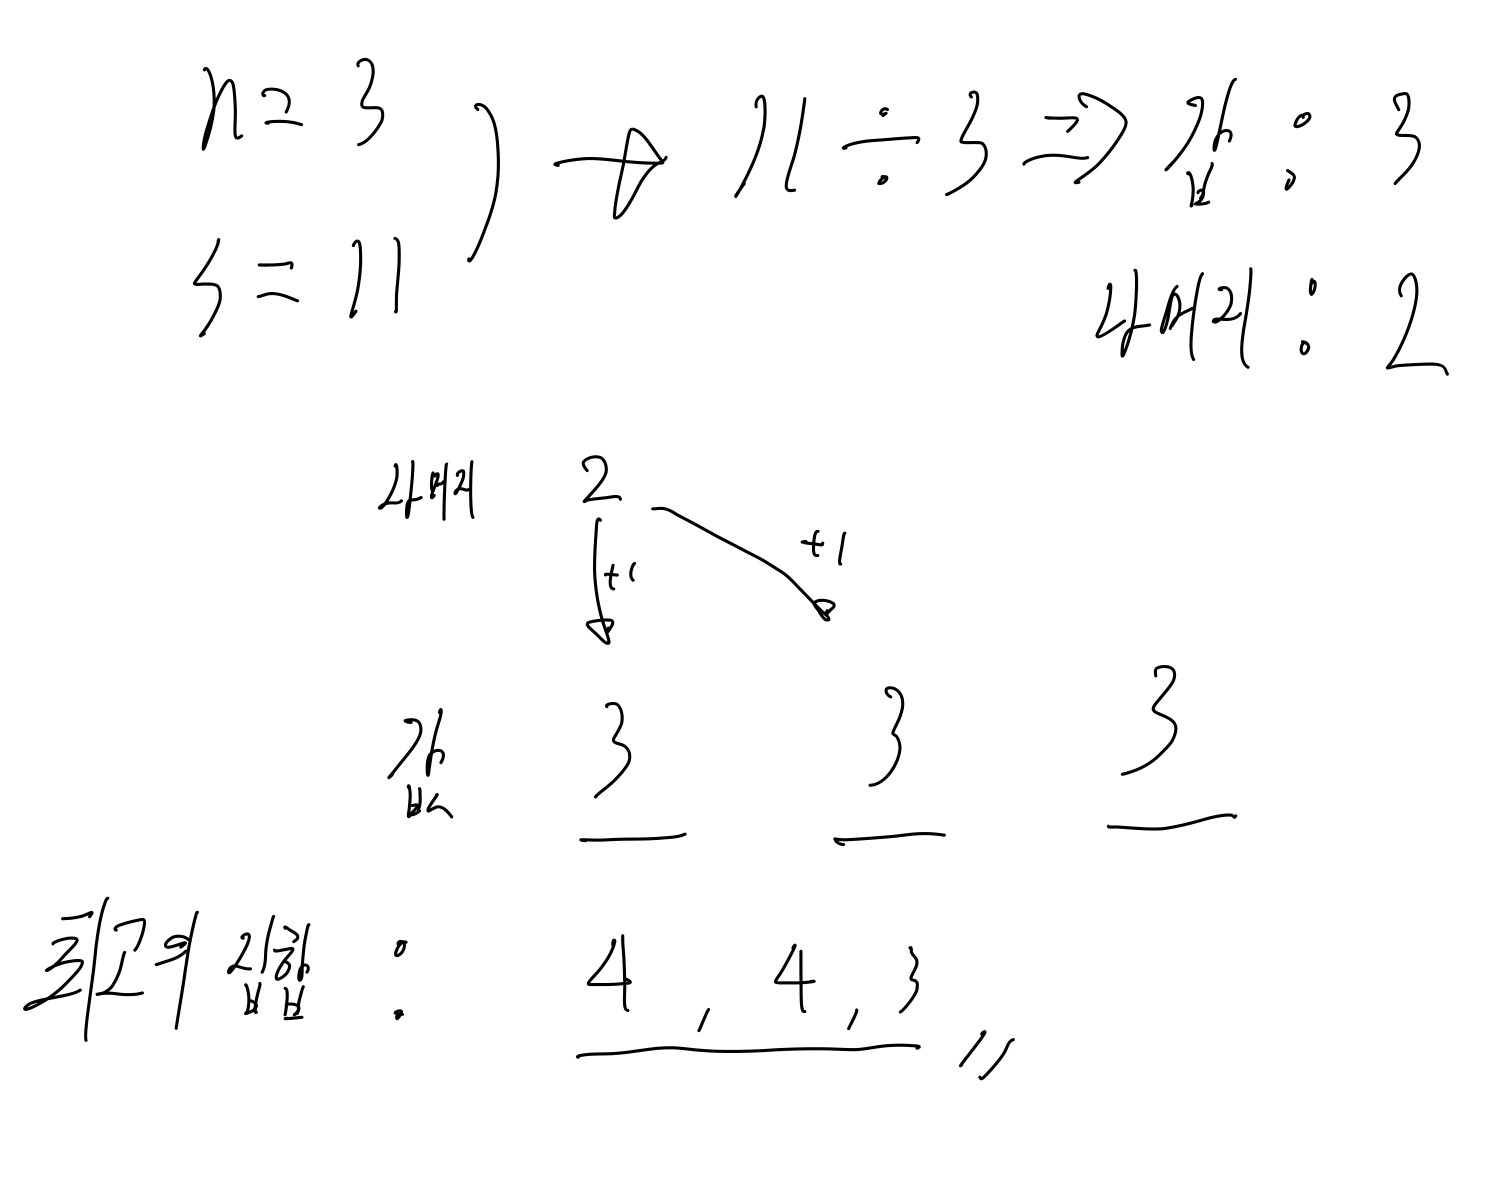 n = 3 ) → 11 ÷ 3 ⇒ 값 : 3
s = 11
나머지 : 2
나머지 2
+1 +1
값 3 3 3
최고의 집합 : 4, 4, 3 〃